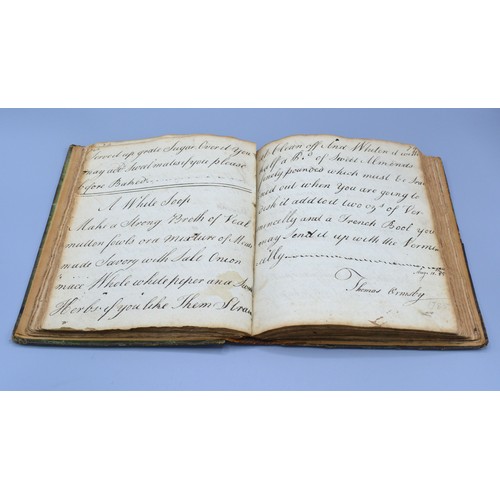 serve it up grate Sugar Over it You
may add Sweetmeats if you please
before Baked
A White Soop
Make a Strong Broth of Veal
mutton fowls or a mixture of Meats
made Savory with Salt Onion
mace Whole white peper and
Herbs if you like Them Strain
Clean off And Whiten it with
half a lb of Sweet Almonds
finely pounded which must be
out when You are going to
it add to it two ozs of Ver
mencelly and a French Rool you
may Send it up with the Vermen
celly
Thomas Ormsby